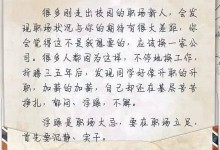 很多刚走出校园的职场新人，会发
现职场状况与你的期待有很大差距，你
会觉得这不是我想要的，应该换一家公
司。很多人都因为这样，不停地换工作，
待腾三五年后，发现同学好像升职的升
职，加薪的加薪，自己却还在基层苦苦
挣扎，郁闷、浮躁、不解。
浮躁是职场大忌，要在职场立足，
首先要沉静、实干。